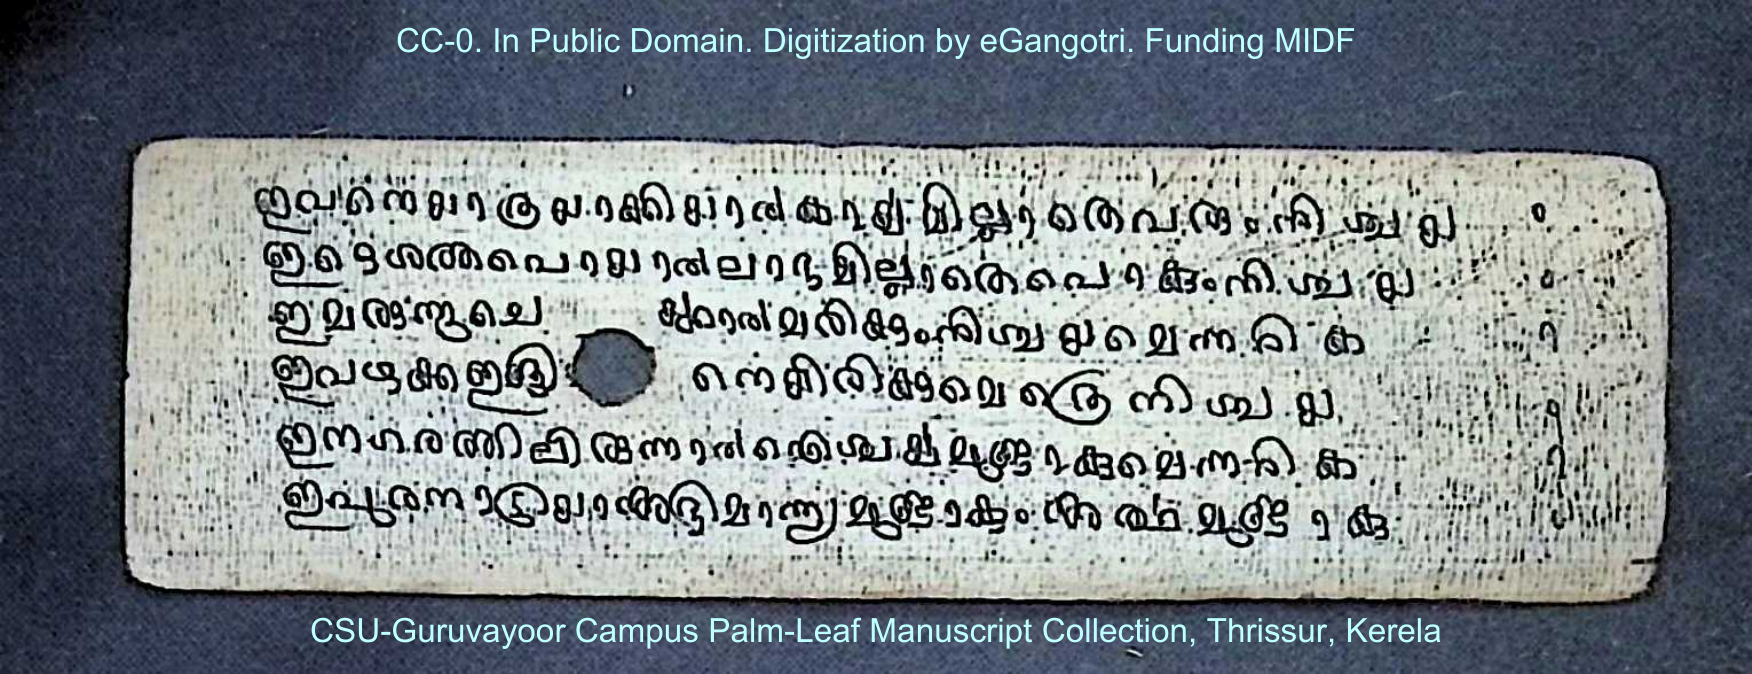 CC-0. In Public Domain. Digitization by eGangotri. Funding MIDF
ഇവനെയാത്രയാക്കിയാൽ കാര്യമില്ലാതെവരും നിശ്ചയ
ഇദ്ദേശത്തപൊയാൽ ലാഭമില്ലാതെപൊകും നിശ്ചയ
ഇമരുന്നുചെ മരിക്കും നിശ്ചയമെന്നറിക
ഇവഴക്ക നെങ്കിരിക്കുമെത്രെ നിശ്ചയ
ഇനഗരത്തിലിരുന്നാൽ ഐശ്വര്യമുണ്ടാകുമെന്നറിക
മുണ്ടാകും അർത്ഥമുണ്ടാകു
CSU-Guruvayoor Campus Palm-Leaf Manuscript Collection, Thrissur, Kerela